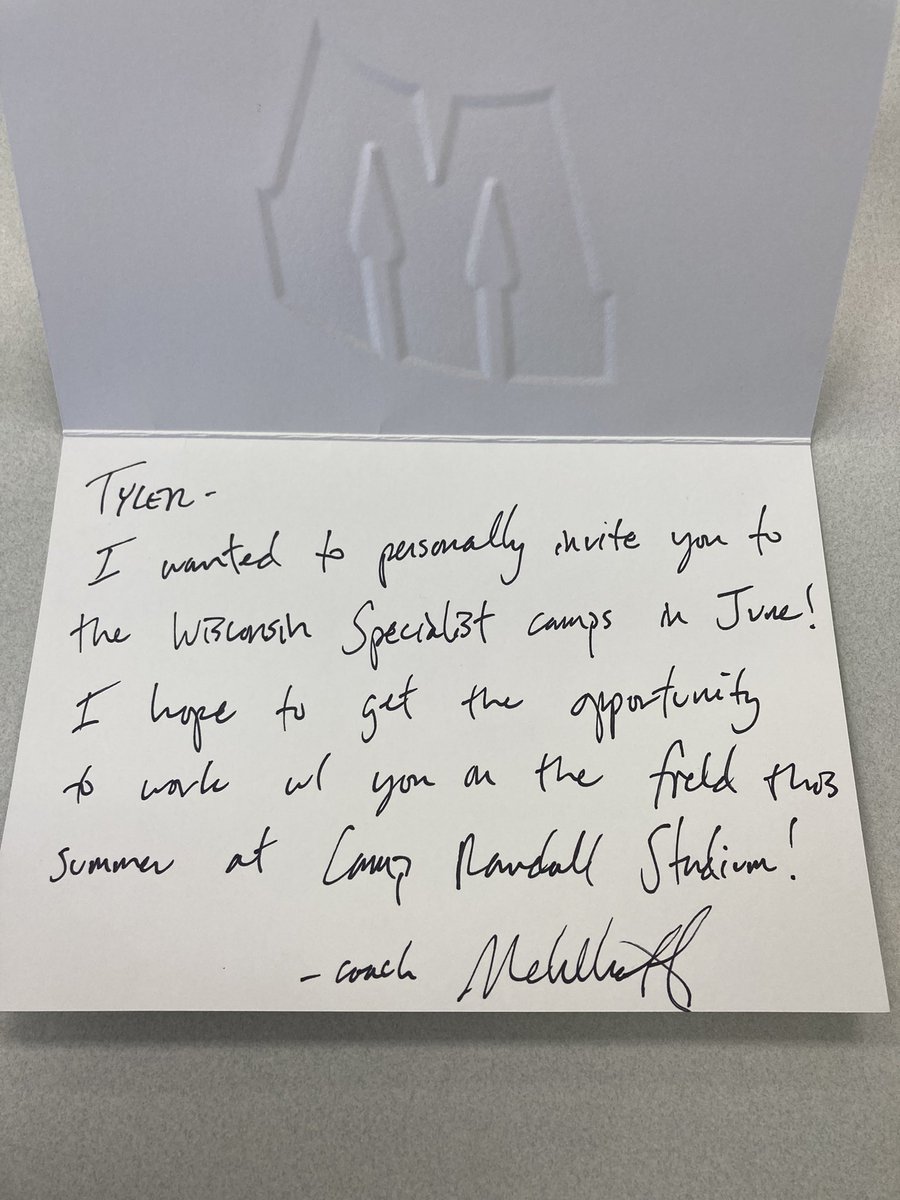 TYLER-
I wanted to personally invite you to
the Wisconsin Specialist camps in June!
I hope to get the opportunity
to work w/ you on the field this
summer at Camp Randall Stadium!
- coach Mehlhaff